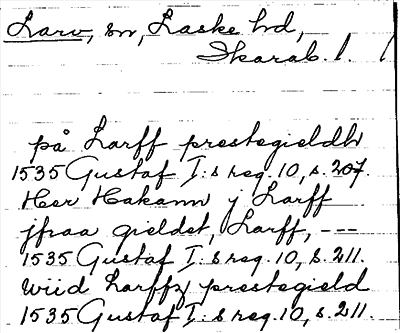 Larv, sn, Laske hd,
Skarab. l.
på Larff prestegieldh
1535 Gustaf I:s reg. 10, s. 207.
Herr Hakann j Larff
jfraa gieldet, Larff, ---
1535 Gustaf I:s reg. 10, s. 211.
wiid Larffz prestegield
1535 Gustaf I:s reg. 10, s. 211.